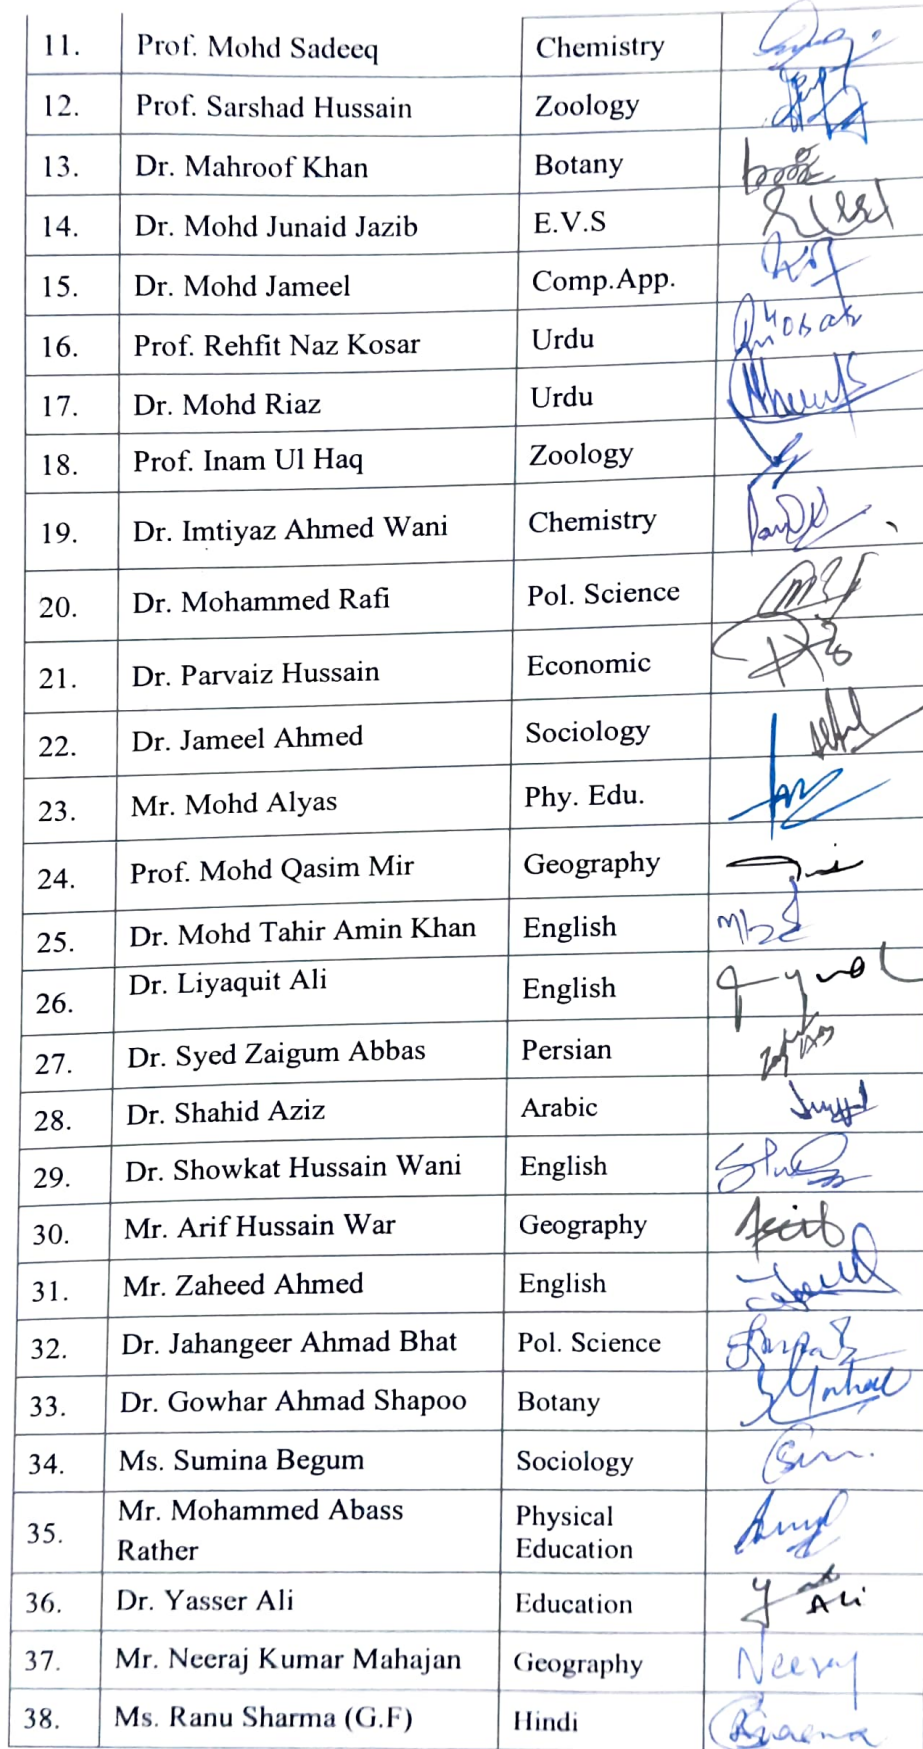 11. Prof. Mohd Sadeeq Chemistry
12. Prof. Sarshad Hussain Zoology
13. Dr. Mahroof Khan Botany
14. Dr. Mohd Junaid Jazib E.V.S
15. Dr. Mohd Jameel Comp.App.
16. Prof. Rehfit Naz Kosar Urdu
17. Dr. Mohd Riaz Urdu
18. Prof. Inam Ul Haq Zoology
19. Dr. Imtiyaz Ahmed Wani Chemistry
20. Dr. Mohammed Rafi Pol. Science
21. Dr. Parvaiz Hussain Economic
22. Dr. Jameel Ahmed Sociology
23. Mr. Mohd Alyas Phy. Edu.
24. Prof. Mohd Qasim Mir Geography
25. Dr. Mohd Tahir Amin Khan English
26. Dr. Liyaquit Ali English
27. Dr. Syed Zaigum Abbas Persian
28. Dr. Shahid Aziz Arabic
29. Dr. Showkat Hussain Wani English
30. Mr. Arif Hussain War Geography
31. Mr. Zaheed Ahmed English
32. Dr. Jahangeer Ahmad Bhat Pol. Science
33. Dr. Gowhar Ahmad Shapoo Botany
34. Ms. Sumina Begum Sociology
35. Mr. Mohammed Abass Physical
Rather Education
36. Dr. Yasser Ali Education Ali
37. Mr. Neeraj Kumar Mahajan Geography Neeraj
38. Ms. Ranu Sharma (G.F) Hindi